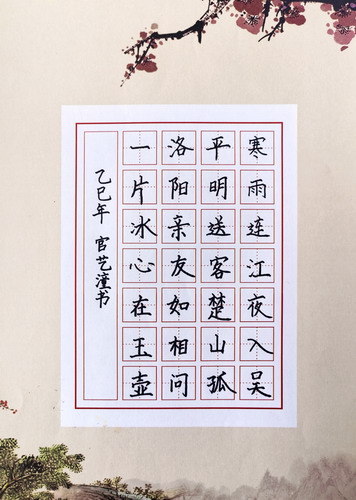 寒雨连江夜入吴
平明送客楚山孤
洛阳亲友如相问
一片冰心在玉壶
乙巳年 官艺潼书